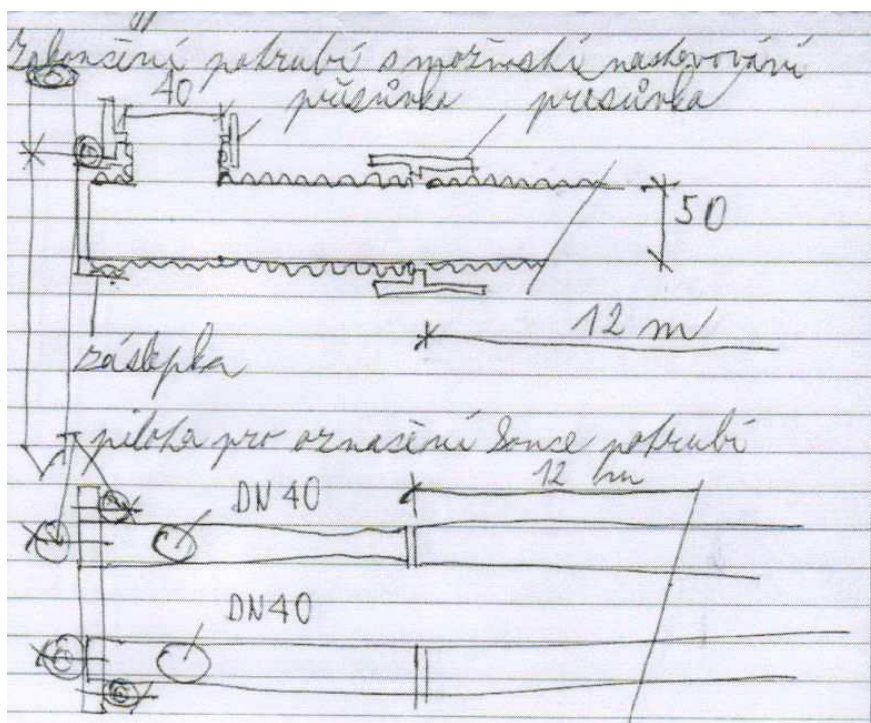 zakončení potrubí s možností nastavování
40
přísůvka přesůvka
50
12 m
záslepka
pilota pro označení konce potrubí
12 m
DN 40
DN 40